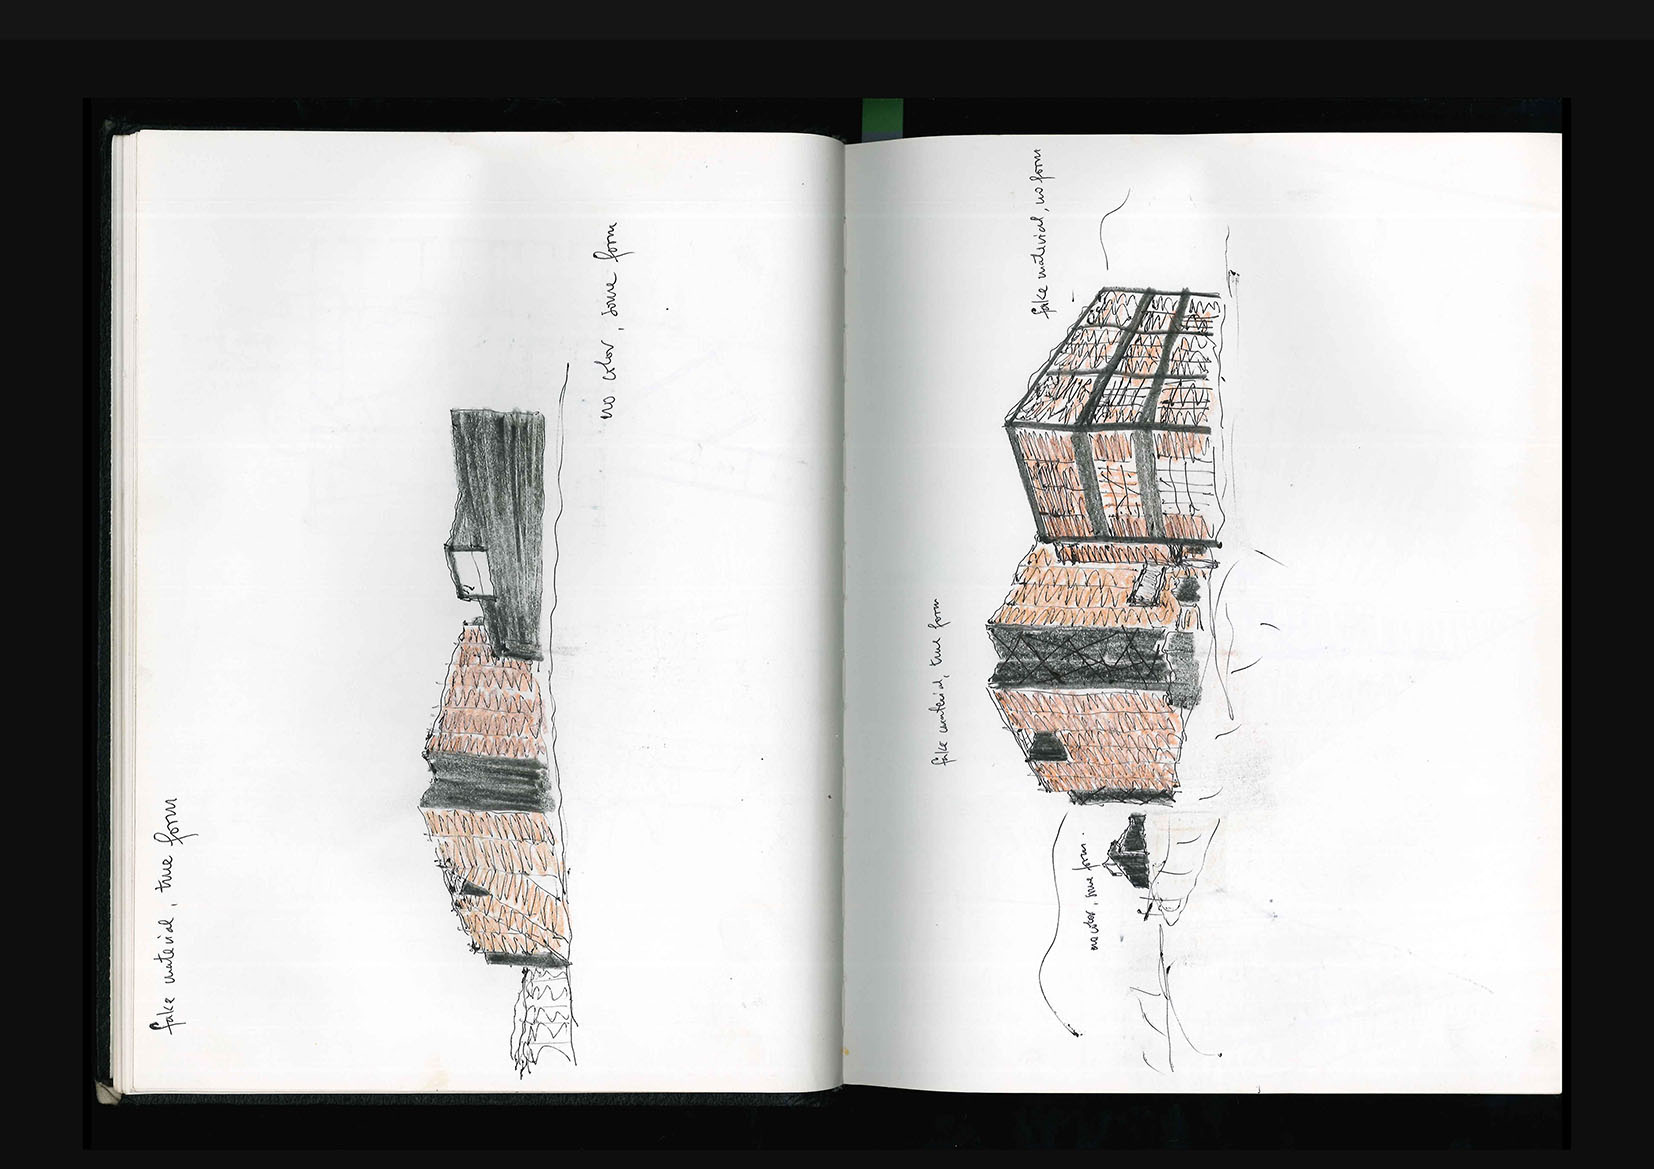 fake material, true form
no color, some form
fake material, true form
fake material, no form
no color, some form